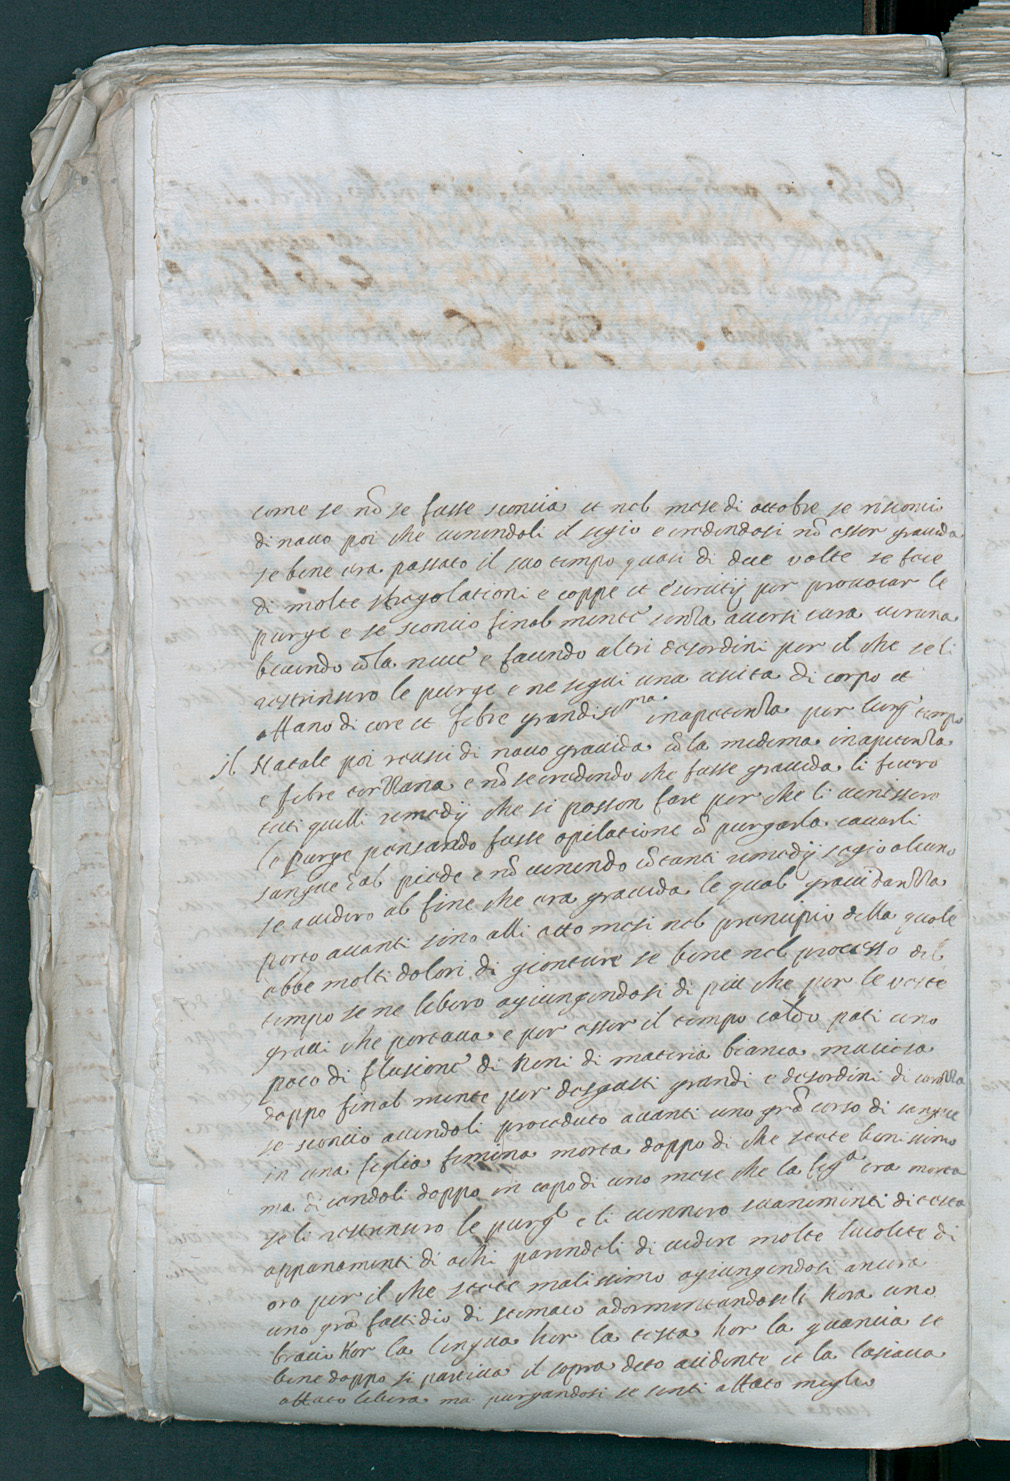 come se nõ se fusse sconcia et nel mese di ottobre se risconciò
di nuouo poi che uenendoli il segio e credendosi nõ esser grauida
se bene era passato il suo tempo quasi di due volte se fece
di molte stregolationi e coppe et esercitij per prouocar le
purge e se sconcio final mente senza auersi cura ueruna
beuendo cõ la neue e facendo altri desordini per il che se li
restrinsero le purge e ne segui una uscita di corpo et
affano di core et febre grandissima inapetenza per lungo tempo
il Natale poi reussi di nouo grauida cõ la medema inapetenza
e febre terzana e nõ se credendo che fusse grauida li fecero
tuti quelli remedij che si posson fare per che li uenissero
le purge pensando fusse opilatione cõ purgarla cauarli
sangue dal piede e nõ uenendo cõ tanti remedij segio alcuno
se auidero al fine che era grauida le qual grauidanza
porto auanti sino alli otto mesi nel principio della quale
ebbe molti dolori di gionture se bene nel processo del
tempo se ne libero agiungendosi di piu che per le veste
graui che portaua e per esser il tempo caldo pati uno
poco di flusione di Reni di materia bianca mucicosa
doppo final mente per desgusti grandi e desordini di
se sconcio auendoli proceduto auanti uno grã corso di sangue
in una figlia femina morta doppo di che stete benissimo
ma dicendoli doppo in capo di uno mese che la figa era morta
se li restrinsero le purge e li uennero suanimenti di testa
appanamenti di ochi parendoli di uedere molte lucolete di
oro per il che stete malissimo agiungendosi ancora
uno grã fastidio di stomaco adormentandoseli hora uno
bracio hor la lingua hor la testa hor la guancia se
bene doppo si partiua il sopra deto acidente et la lasciaua
affato libera ma purgandosi se senti affato meglio